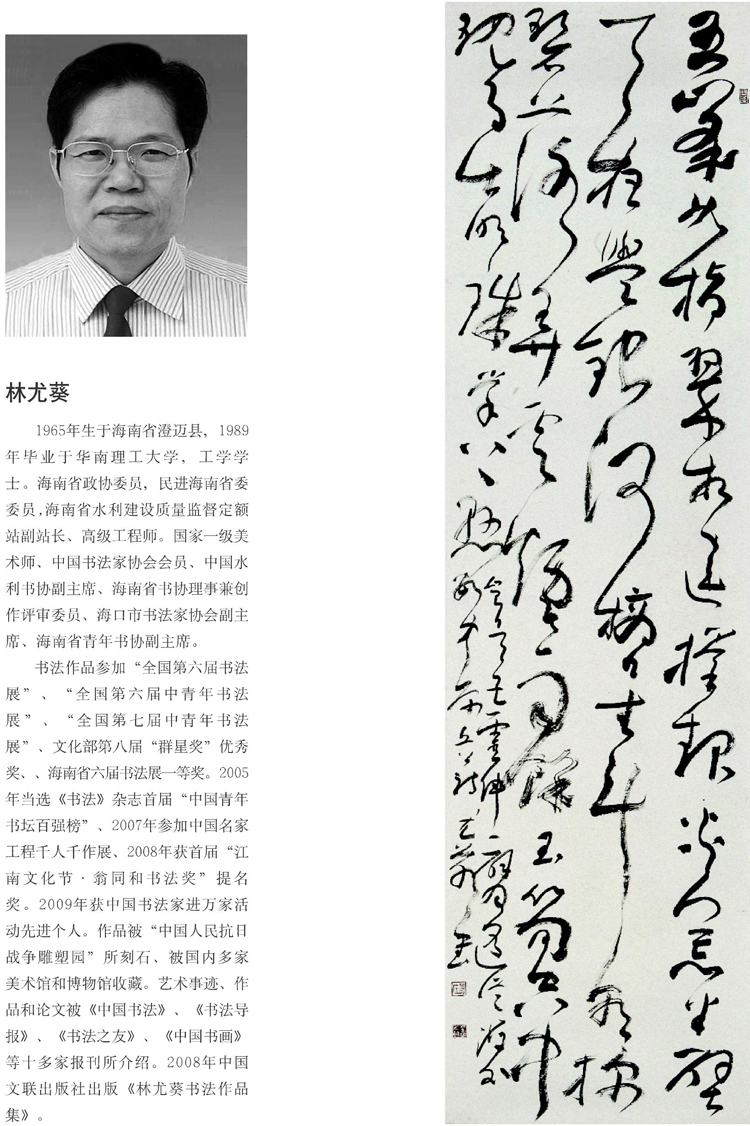 林尤葵
1965年生于海南省澄迈县，1989
年毕业于华南理工大学，工学学
士。海南省政协委员，民进海南省委
委员,海南省水利建设质量监督定额
站副站长、高级工程师。国家一级美
术师、中国书法家协会会员、中国水
利书协副主席、海南省书协理事兼创
作评审委员、海口市书法家协会副主
席、海南省青年书协副主席。
书法作品参加“全国第六届书法
展”、“全国第六届中青年书法
展”、“全国第七届中青年书法
展”、文化部第八届“群星奖”优秀
奖、、海南省六届书法展一等奖。2005
年当选《书法》杂志首届“中国青年
书坛百强榜”、2007年参加中国名家
工程千人千作展、2008年获首届“江
南文化节·翁同和书法奖”提名
奖。2009年获中国书法家进万家活
动先进个人。作品被“中国人民抗日
战争雕塑园”所刻石、被国内多家
美术馆和博物馆收藏。艺术事迹、作
品和论文被《中国书法》、《书法导
报》、《书法之友》、《中国书画》
等十多家报刊所介绍。2008年中国
文联出版社出版《林尤葵书法作品
集》。
五峰如指翠相連撑起炎荒半壁
天夜盥銀河摘星斗朝探
碧落弄雲烟雨餘玉笋空中
現月出明珠掌上懸